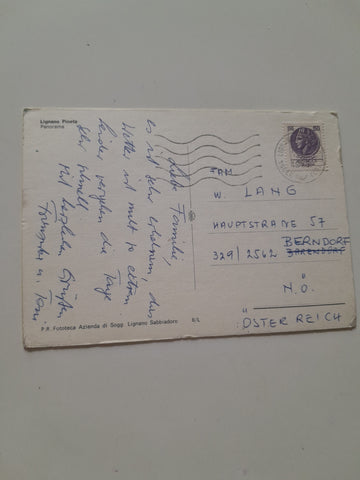 Lignano Pineta
Panorama
Liebe Familie,
es ist sehr erholsam, das
Wetter ist nicht so extrem.
Leider vergehen die Tage
sehr schnell
Mit herzlichen Grüßen
u. Toni
P.R. Fototeca Azienda di Sogg. Lignano Sabbiadoro
8/L
50
FAM
W. LANG
HAUPTSTRASSE 57
329/2562 BERNDORF
N.Ö.
ÖSTERREICH